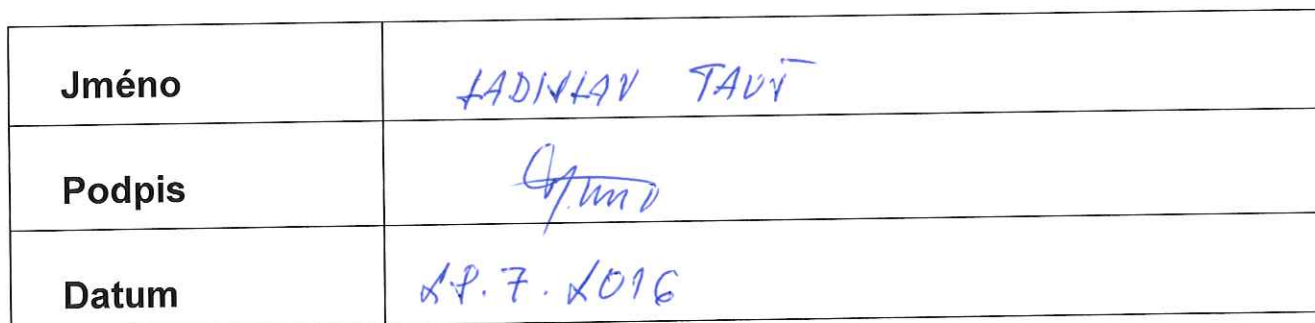 Jméno LADISLAV
Podpis
Datum 28.7.2016